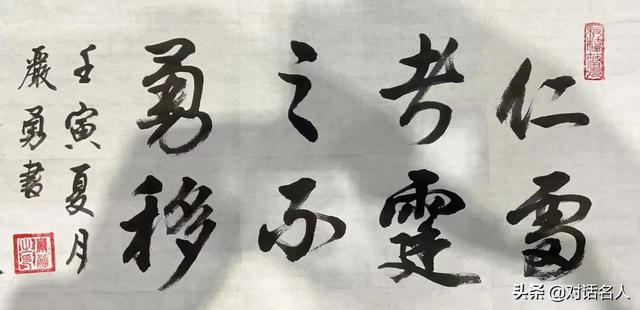 仁者之勇
雷霆不移
壬寅夏月
嚴勇書
头条 @对话名人